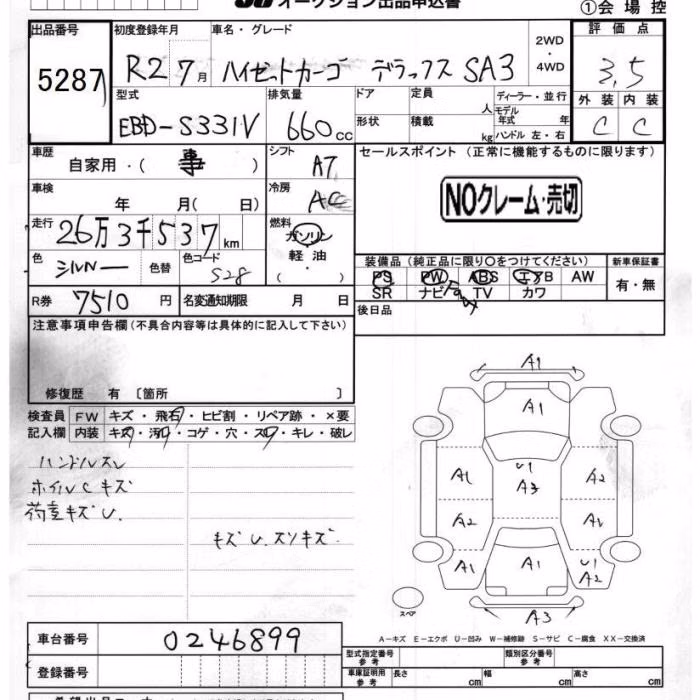 オークション出品申込書 ①会場控
出品番号 初度登録年月 車名・グレード 2WD・4WD 評価点
5287 R2 7月 ハイゼットカーゴ デラックス SA3 3.5
型式 排気量 ドア 定員 人 ディーラー・並行 外装 内装
EBD-S331V 660cc 形状 積載 kg モデル年式 年 ハンドル 左・右 C C
車歴 シフト セールスポイント (正常に機能するものに限ります)
自家用・( 事 ) AT
車検 冷房
年 月( 日) AC NOクレーム・売切
走行 燃料
26万3千537km ガソリン・軽油・( )
色 色替 色コード 装備品(純正品に限り○をつけてください) 新車保証書
シルバー S28 PS PW ABS エアB AW 有・無
SR ナビ TV カワ
R券 7510円 名変通知期限 月 日 後日品
注意事項申告欄(不具合内容等は具体的に記入して下さい)
修復歴 有 〔箇所 〕
検査員 FW キズ・飛石・ヒビ割・リペア跡・×要
記入欄 内装 キズ・汚れ・コゲ・穴・スレ・キレ・破レ
ハンドルスレ
ホイルCキズ
荷室キズU.
キズ U. スリキズ.
A1
A1
A1 U1 A3 A2
A2 A1
A1 A1 U1 A2
A3
スペア
A-キズ E-エクボ U-凹み W-補修跡 S-サビ C-腐食 XX-交換済
車台番号 0246899
型式指定番号 参考 類別区分番号 参考
登録番号 車庫証明用 参考 長さ cm 幅 cm 高さ cm